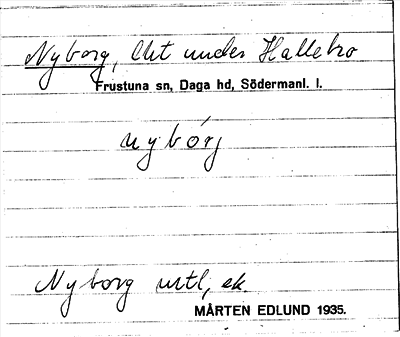 Nyborg, lht under Hallebro
Frustuna sn, Daga hd, Södermanl. l.
nybórj
Nyborg mtl, ek.
MÅRTEN EDLUND 1935.